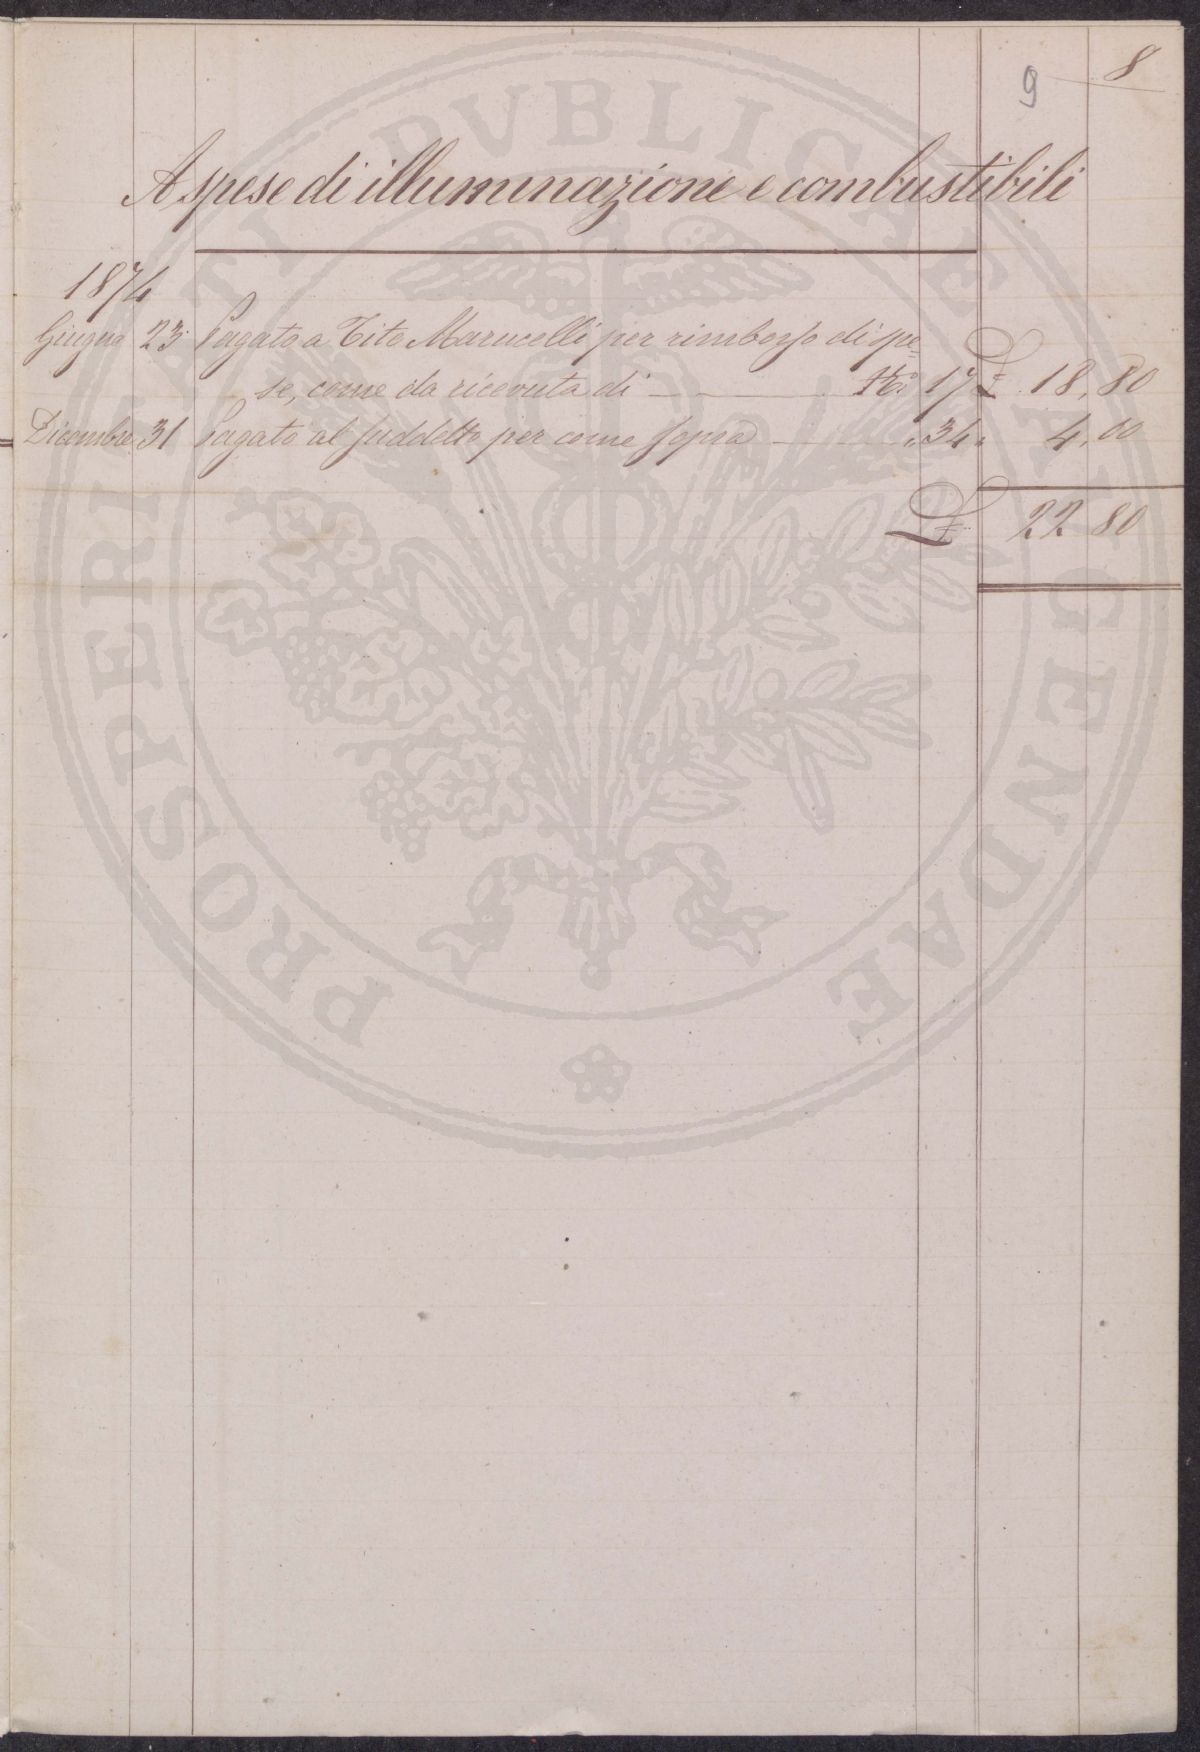 9 8
A spese di illuminazione e combustibili
1874
Giugno 23 Pagato a Tito Marucelli per rimborso di spe=
se, come da ricevuta di No. 17 £ 18,80
Dicembre 31 Pagato al suddetto per come sopra " 34 " 4,00
£ 22 80
PROSPERITATI PVBLICAE AVGENDAE